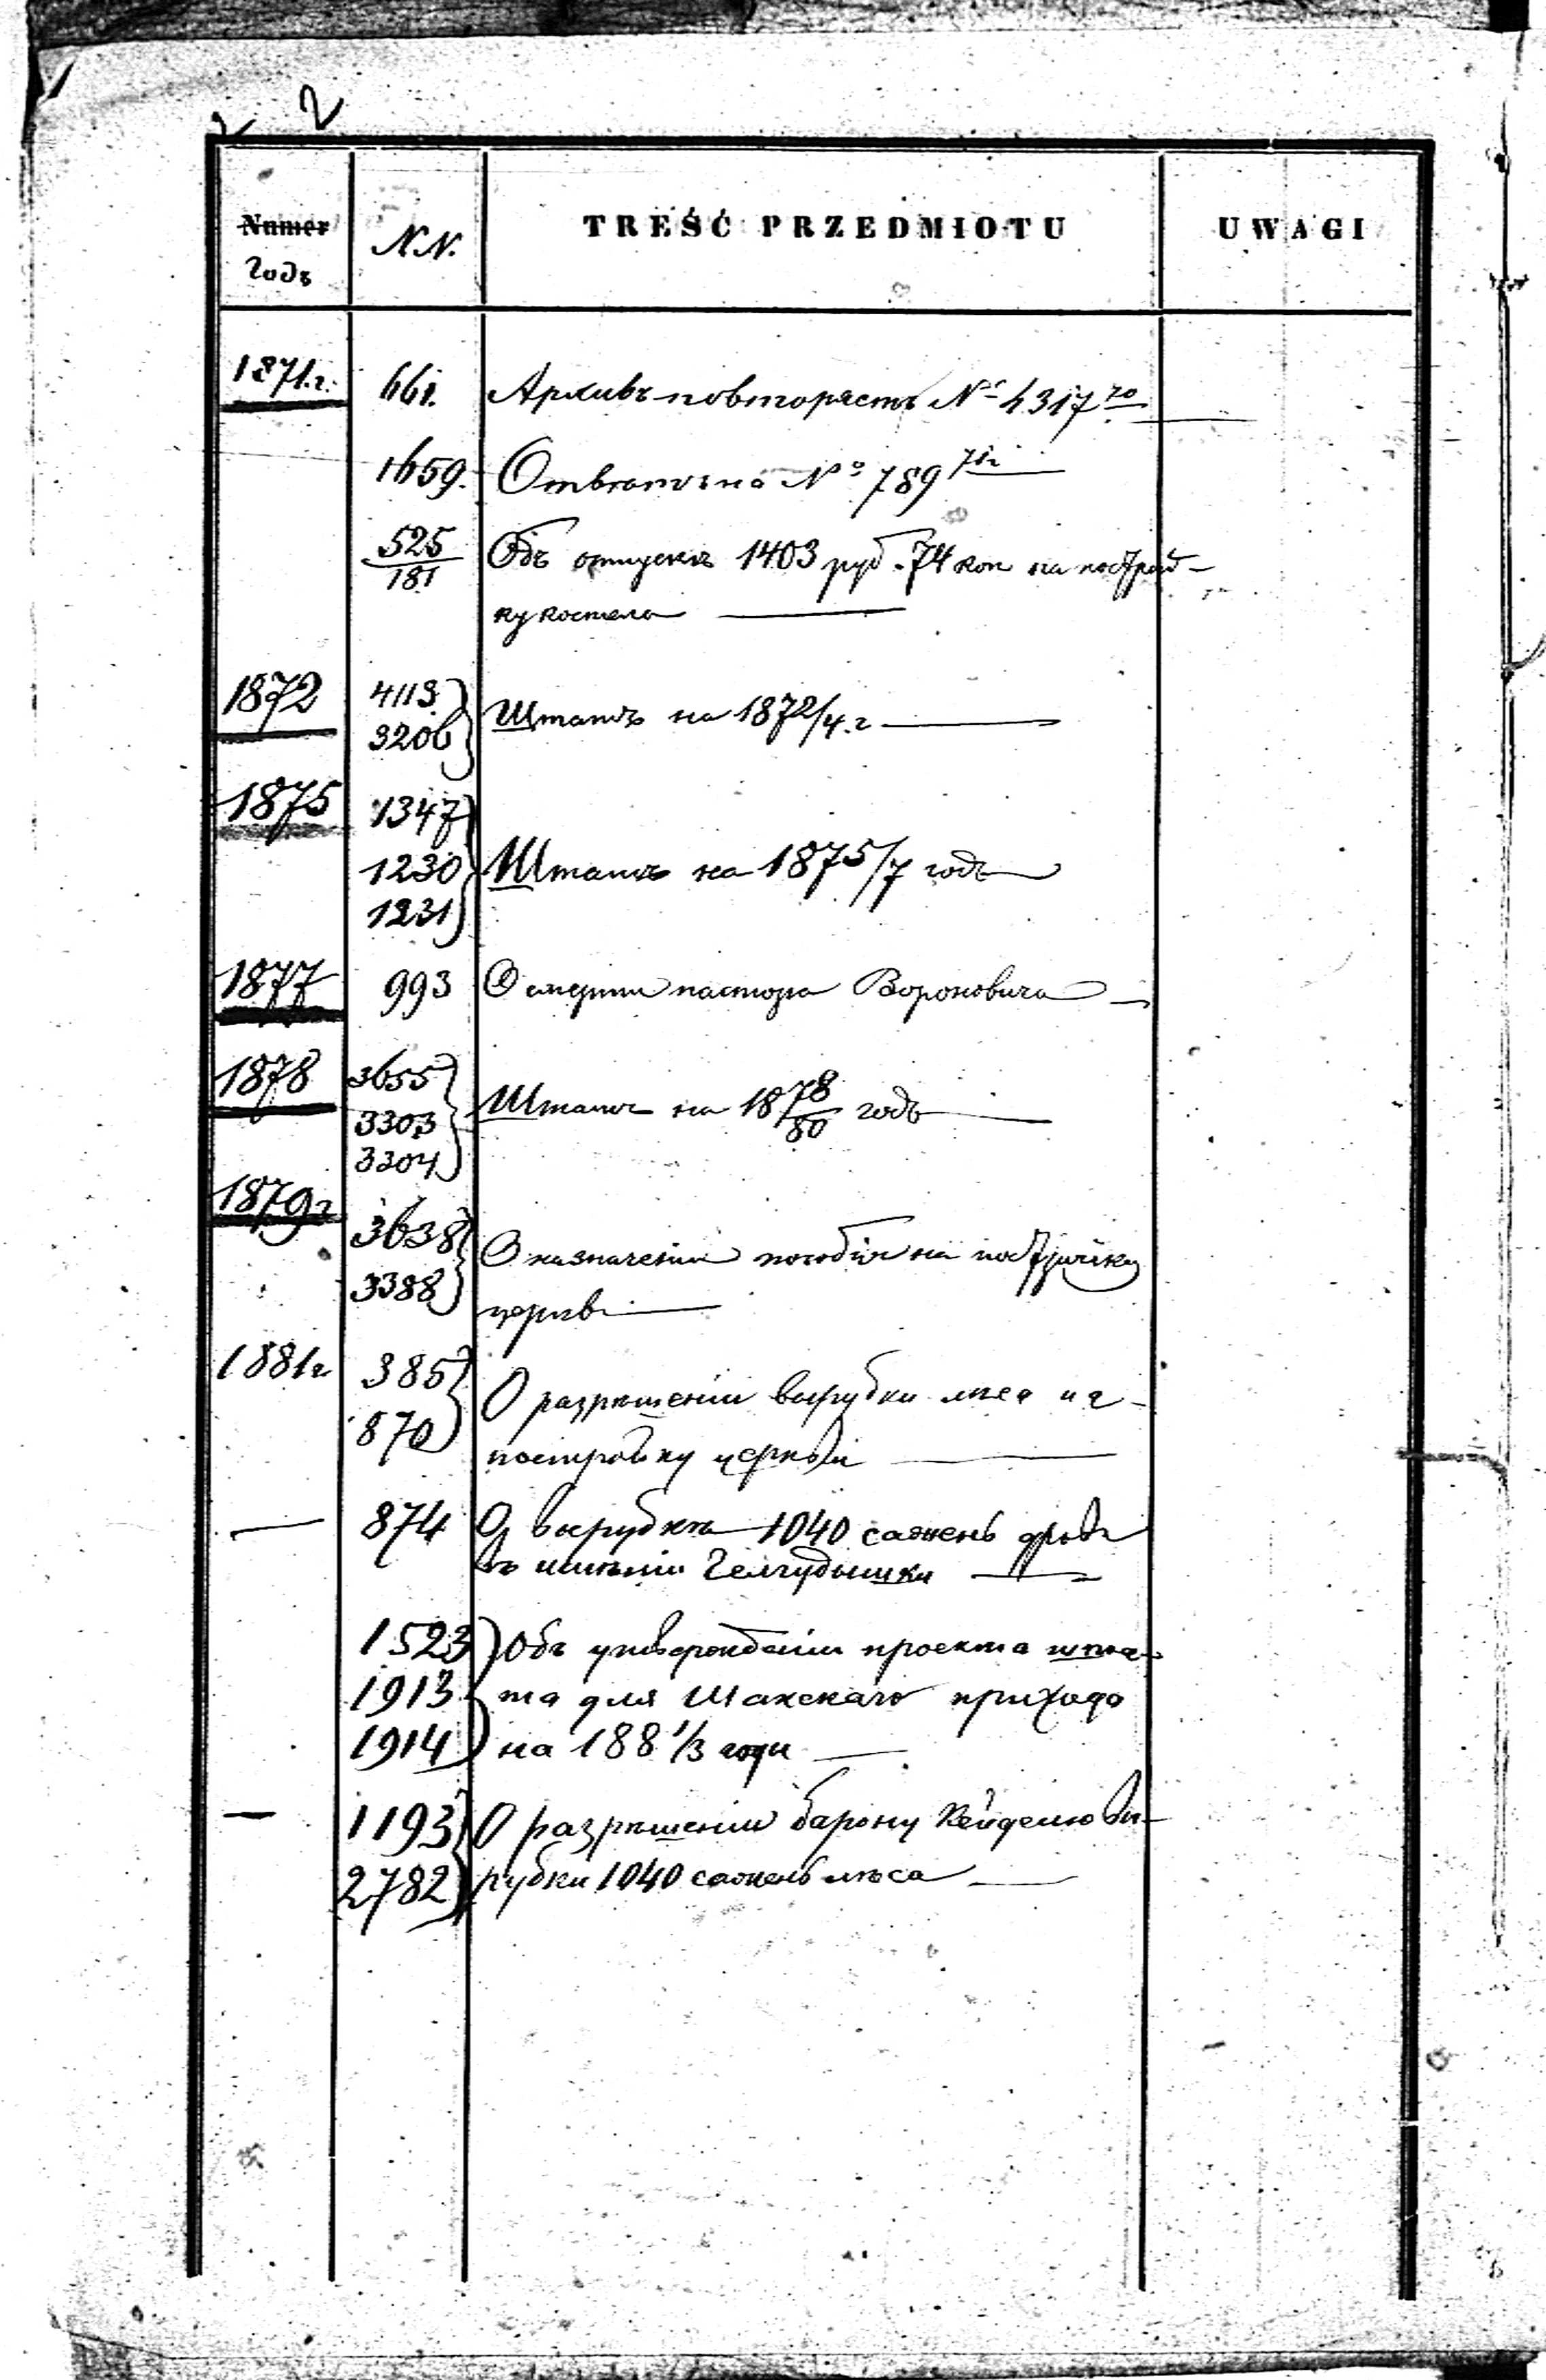 2
Numer N.N. TREŚĆ PRZEDMIOTU UWAGI
Годъ
1871.г. 661. Архивъ повторяетъ № 4317 70
1659. Ответъ на № 789 71г
525/181 Объ отпускѣ 1403 руб. 74 коп на построй-
ку костела
1872 4113 Штатъ на 1872/4.г
3206
1875 1347
1230 Штатъ на 1875/7 годъ
1231
1877 993 О смерти пастора Вороновича
1878 3655
3303 Штатъ на 1878/80 годъ
3304
1879г 3638 О назначеніи пособія на постройку
3388 церкви
1881г 385 О разрѣшеніи вырубки лѣса на
870 постройку церкви
— 874 О вырубкѣ 1040 сажень дровъ
въ имѣніи Гелгудышки
1523 Объ утвержденіи проекта шта-
1913 та для Шакскаго прихода
1914 на 188 1/3 годы
— 1193 О разрѣшеніи барону Кейделю вы-
2782 рубки 1040 сажень лѣса